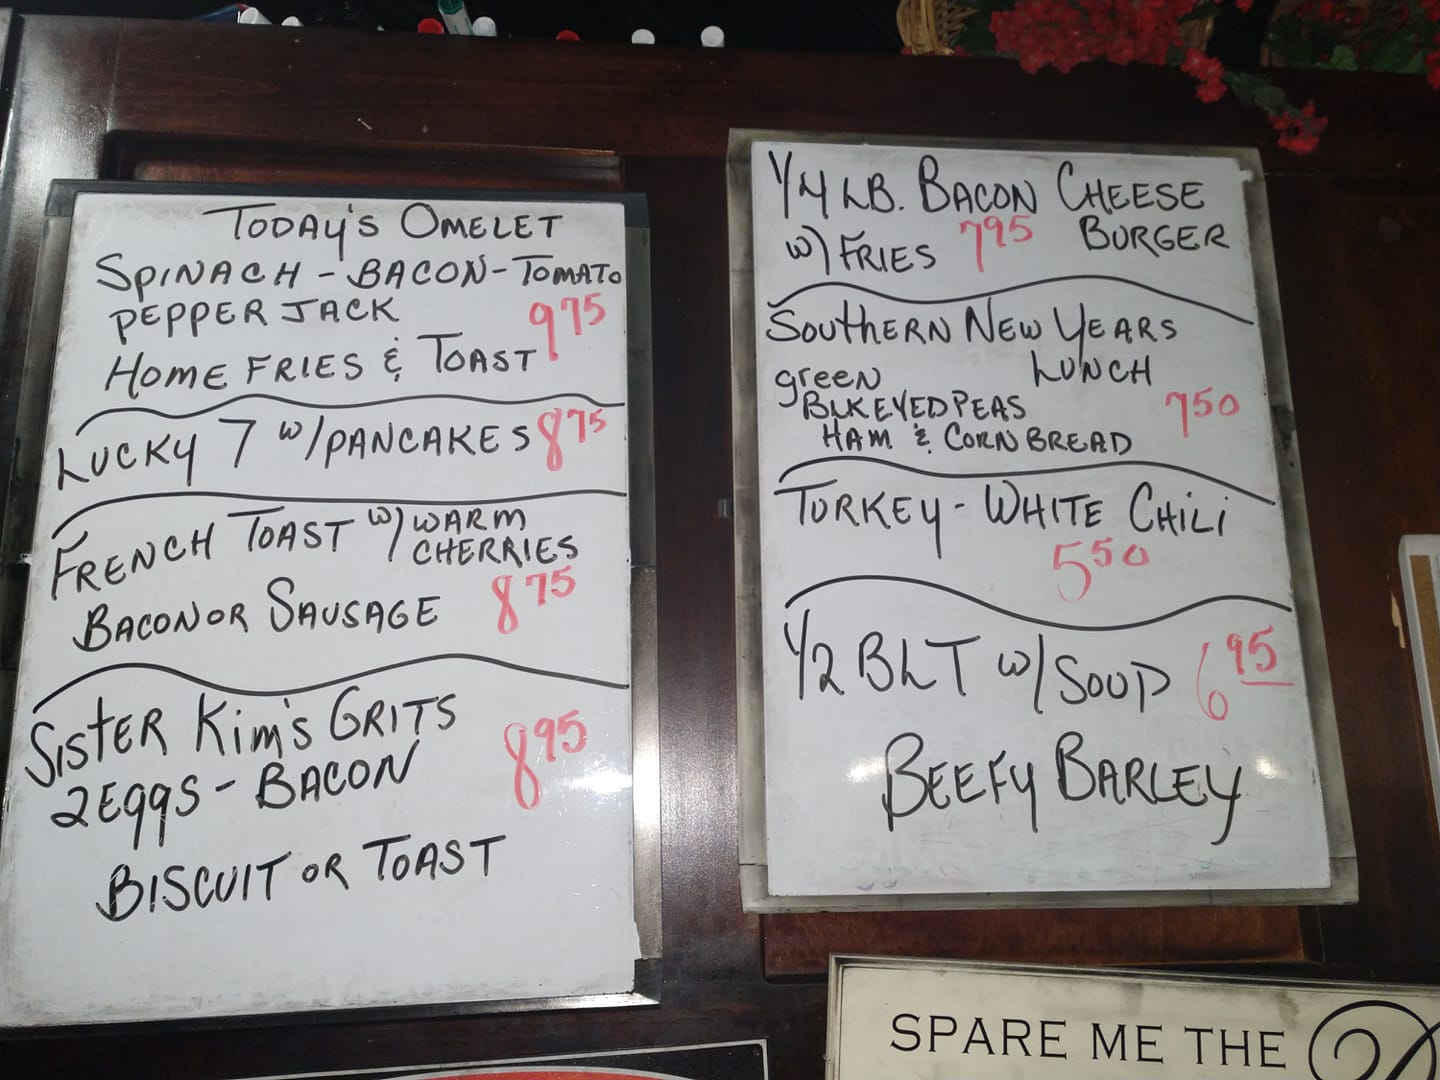 TODAY'S OMELET
SPINACH - BACON - TOMATO
PEPPER JACK 975
HOME FRIES & TOAST
LUCKY 7 W/PANCAKES 875
FRENCH TOAST W/WARM
CHERRIES
BACON OR SAUSAGE 875
SISTER KIM'S GRITS
2 EGGS - BACON 895
BISCUIT OR TOAST
1/4 LB. BACON CHEESE
W/FRIES 795 BURGER
SOUTHERN NEW YEARS
LUNCH
green
BLKEYED PEAS 750
HAM & CORN BREAD
TURKEY - WHITE CHILI
550
1/2 BLT W/SOUP 695
BEEFY BARLEY
SPARE ME THE